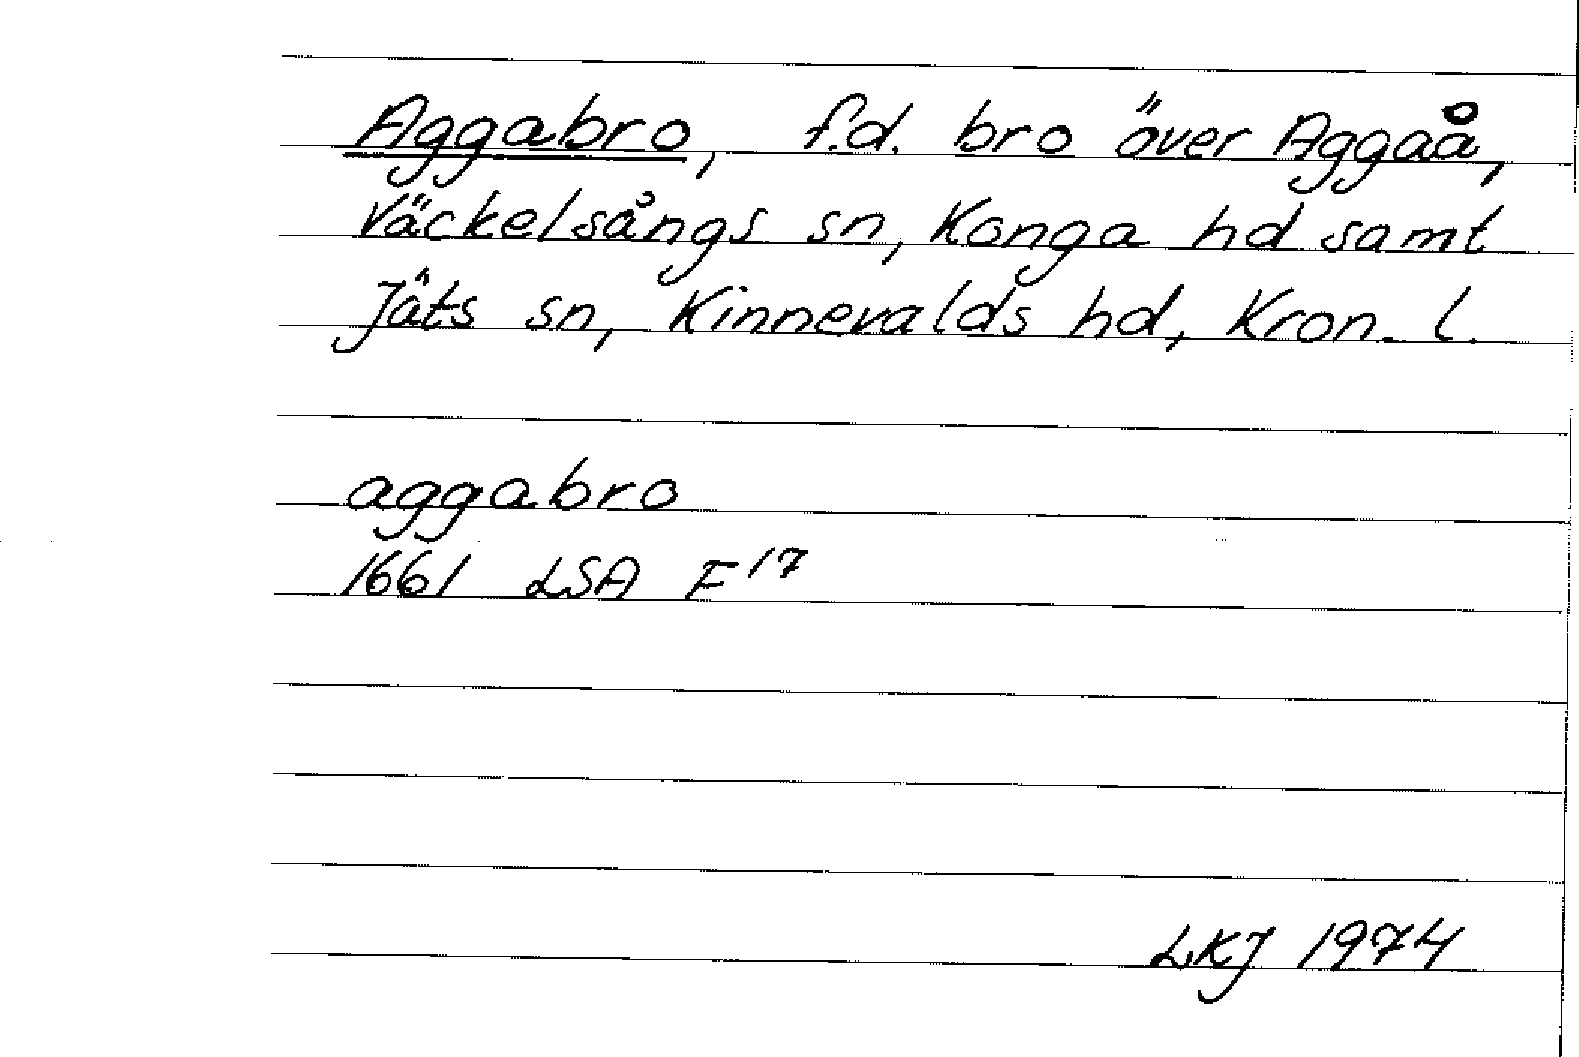 Aggabro, f.d. bro över Aggaå,
Väckelsångs sn, Konga hd samt
Jäts sn, Kinnevalds hd, Kron. l.
aggabro
1661 LSA F17
LKJ 1974